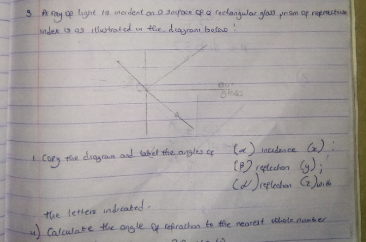 3 A ray of light is incident on a surface of a rectangular glass prism of refractive
index is as illustrated in the diagram below
air
glass
1. Copy the diagram and label the angles of (α) incidence (x)
(β) reflection (y);
(α) reflection (z) with
the letters indicated.
Calculate the angle of refraction to the nearest whole number